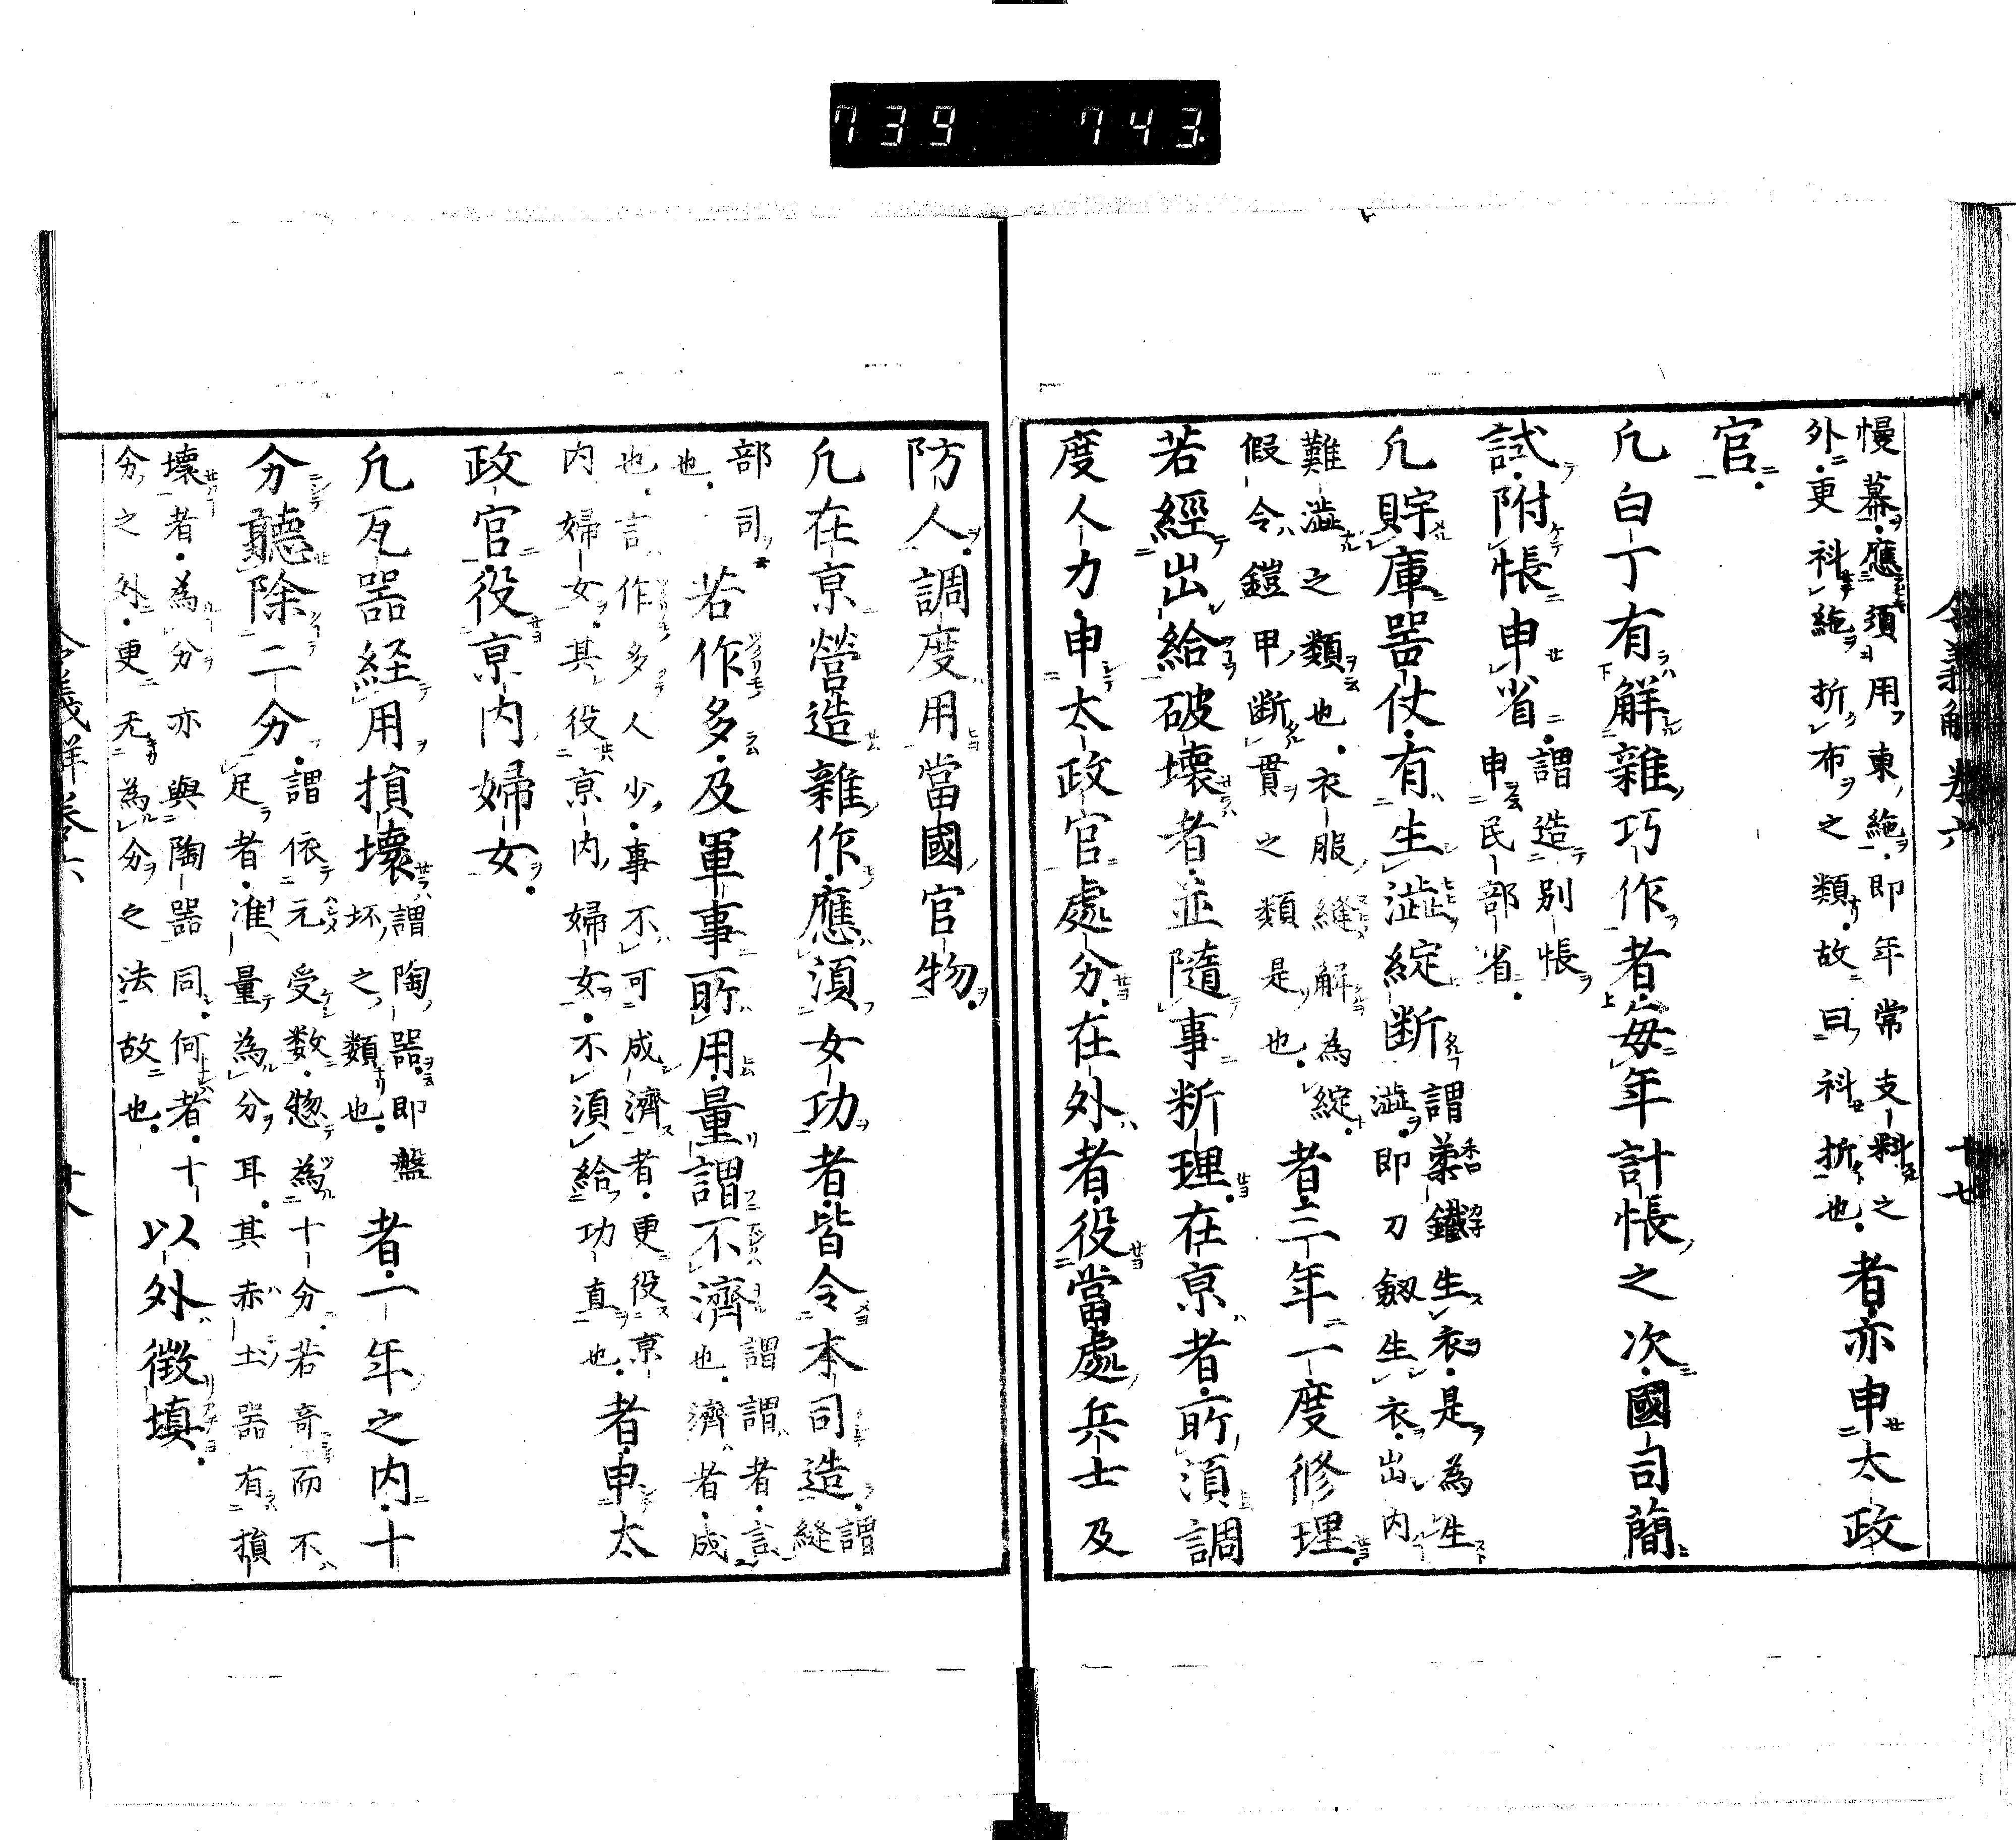 739 743
幔幕應須用東絁即年常支料之
外更科絁折布之類故曰科折也
者亦申太政
官
凢白丁有解雜巧作者毎年計帳之次國司簡
試附帳申省
謂造別帳
申民部省
凢貯庫噐仗有生澁綻断
謂柔鐵生衣是為生
澁即刀釼生衣出内
難澁之類也衣服縫解為綻
假令鎧甲断貫之類是也
者三年一度修理
若經出給破壊者並隨事斬理在京者所須調
度人力申太政官處分在外者役當處兵士及
防人調度用當國官物
凢在京營造雜作應須女功者皆令本司造
謂縫
部司
也
若作多及軍事所用量謂不濟
謂謂者言
也濟者成
也言作多人少事不可成濟者更役京
内婦女其役京内婦女不須給功直也
者申太
政官役京内婦女
凢瓦噐経用損壊
謂陶噐即盤
坏之類也
者一年之内十
分聽除二分
謂依元受数惣為十分若奇而不
足者准量為分耳其赤土噐有損
壊者為分亦與陶噐同何者十
分之外更无為分之法故也
以外徴填
令義解巻六
十七